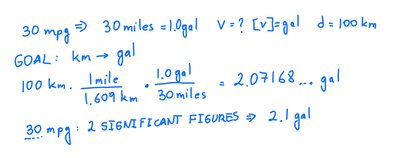 30 mpg ⇒ 30 miles = 1.0gal V = ? [v]=gal d = 100 km
GOAL: km → gal
100 km · 1 mile / 1.609 km · 1.0 gal / 30 miles = 2.07168... gal
30 mpg : 2 SIGNIFICANT FIGURES ⇒ 2.1 gal